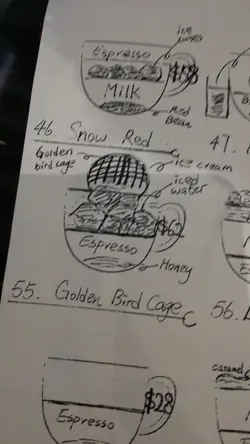 ice
Espresso
$58
Milk
Red
Bean
46. Snow Red
47.
Golden
bird cage
ice cream
iced
water
$62
Espresso
Honey
55. Golden Bird Cage
56.
caramel
$28
Espresso